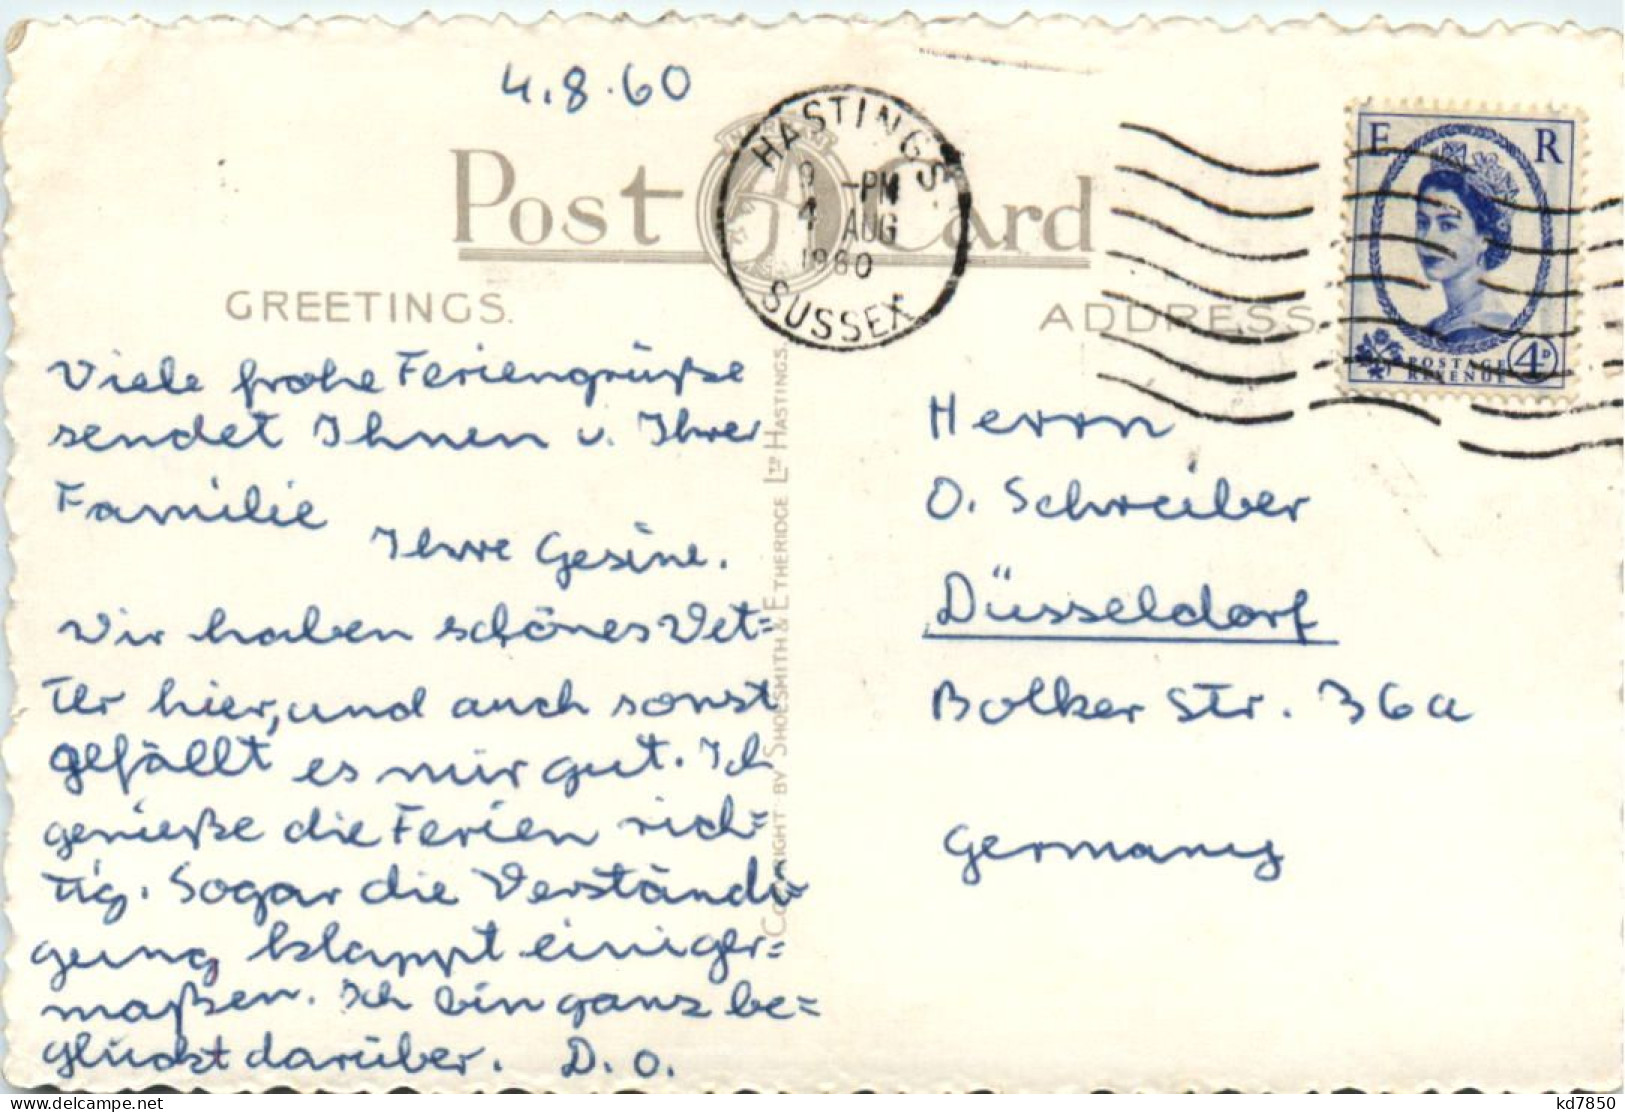 4.8.60
Post Card
HASTINGS
9 - PM
4 AUG
1960
SUSSEX
E R
POSTAGE
REVENUE
4D
GREETINGS.
ADDRESS
Viele frohe Feriengrüße
sendet Ihnen u. Ihrer
Familie
Ihre Gesine.
Wir haben schönes Wet=
ter hier, und auch sonst
gefällt es mir gut. Ich
genieße die Ferien rich=
tig. Sogar die Verständi=
gung klappt einiger=
maßen. Ich bin ganz be=
glückt darüber. D. O.
COPYRIGHT BY SHOESMITH & ETHERIDGE LTD HASTINGS.
Herrn
O. Schreiber
Düsseldorf
Bolker Str. 36a
Germany
delcampe.net
kd7850